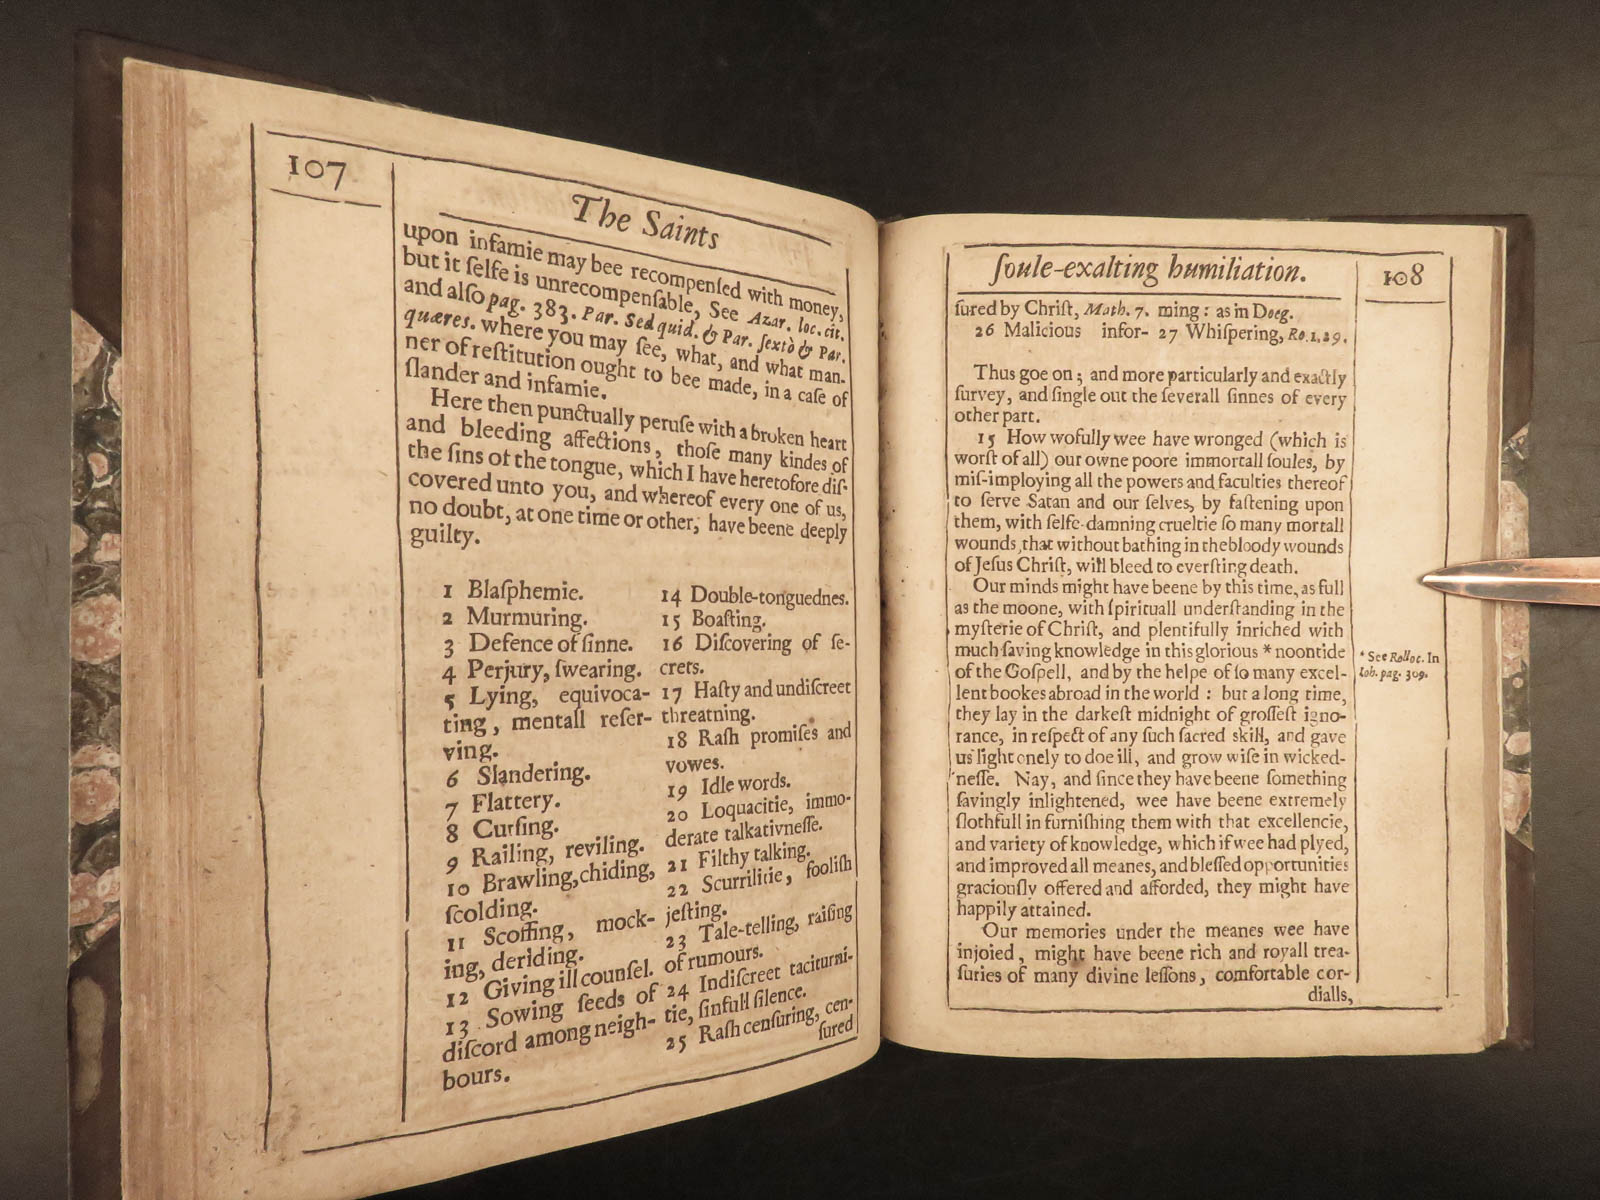 107
The Saints
upon infamie may bee recompenſed with money,
but it ſelfe is unrecompenſable, See Azar. loc. cit.
and alſo pag. 383. Par. Sed quid. & Par. ſextò & Par.
quæres. where you may ſee, what, and what man-
ner of reſtitution ought to bee made, in a caſe of
ſlander and infamie.
Here then punctually peruſe with a broken heart
and bleeding affections, thoſe many kindes of
the ſins of the tongue, which I have heretofore diſ-
covered unto you, and whereof every one of us,
no doubt, at one time or other, have beene deeply
guilty.
1 Blaſphemie.
2 Murmuring.
3 Defence of ſinne.
4 Perjury, ſwearing.
5 Lying, equivoca-
ting, mentall reſer-
ving.
6 Slandering.
7 Flattery.
8 Curſing.
9 Railing, reviling.
10 Brawling, chiding,
ſcolding.
11 Scoffing, mock-
ing, deriding.
12 Giving ill counſel.
13 Sowing ſeeds of
diſcord among neigh-
bours.
14 Double-tonguednes.
15 Boaſting.
16 Diſcovering of ſe-
crets.
17 Haſty and undiſcreet
threatning.
18 Raſh promiſes and
vowes.
19 Idle words.
20 Loquacitie, immo-
derate talkativneſſe.
21 Filthy talking.
22 Scurrilitie, fooliſh
jeſting.
23 Tale-telling, raiſing
of rumours.
24 Indiſcreet taciturni-
tie, ſinfull ſilence.
25 Raſh cenſuring, cen-
ſured
ſoule-exalting humiliation.
108
ſured by Chriſt, Math. 7.
26 Malicious infor-
ming: as in Doeg.
27 Whiſpering, Ro. 1.29.
Thus goe on; and more particularly and exactly
ſurvey, and ſingle out the ſeverall ſinnes of every
other part.
15 How wofully wee have wronged (which is
worſt of all) our owne poore immortall ſoules, by
miſ-imploying all the powers and faculties thereof
to ſerve Satan and our ſelves, by faſtening upon
them, with ſelfe-damning crueltie ſo many mortall
wounds, that without bathing in the bloody wounds
of Jeſus Chriſt, will bleed to everſting death.
Our minds might have beene by this time, as full
as the moone, with ſpirituall underſtanding in the
myſterie of Chriſt, and plentifully inriched with
much ſaving knowledge in this glorious * noontide
of the Goſpell, and by the helpe of ſo many excel-
lent bookes abroad in the world : but a long time,
they lay in the darkeſt midnight of groſſeſt igno-
rance, in reſpect of any ſuch ſacred skill, and gave
us light onely to doe ill, and grow wiſe in wicked-
neſſe. Nay, and ſince they have beene ſomething
ſavingly inlightened, wee have beene extremely
ſlothfull in furniſhing them with that excellencie,
and variety of knowledge, which if wee had plyed,
and improved all meanes, and bleſſed opportunities
graciouſly offered and afforded, they might have
happily attained.
Our memories under the meanes wee have
injoied, might have beene rich and royall trea-
ſuries of many divine leſſons, comfortable cor-
dialls,
* See Rolloc. In
Ioh. pag. 309.